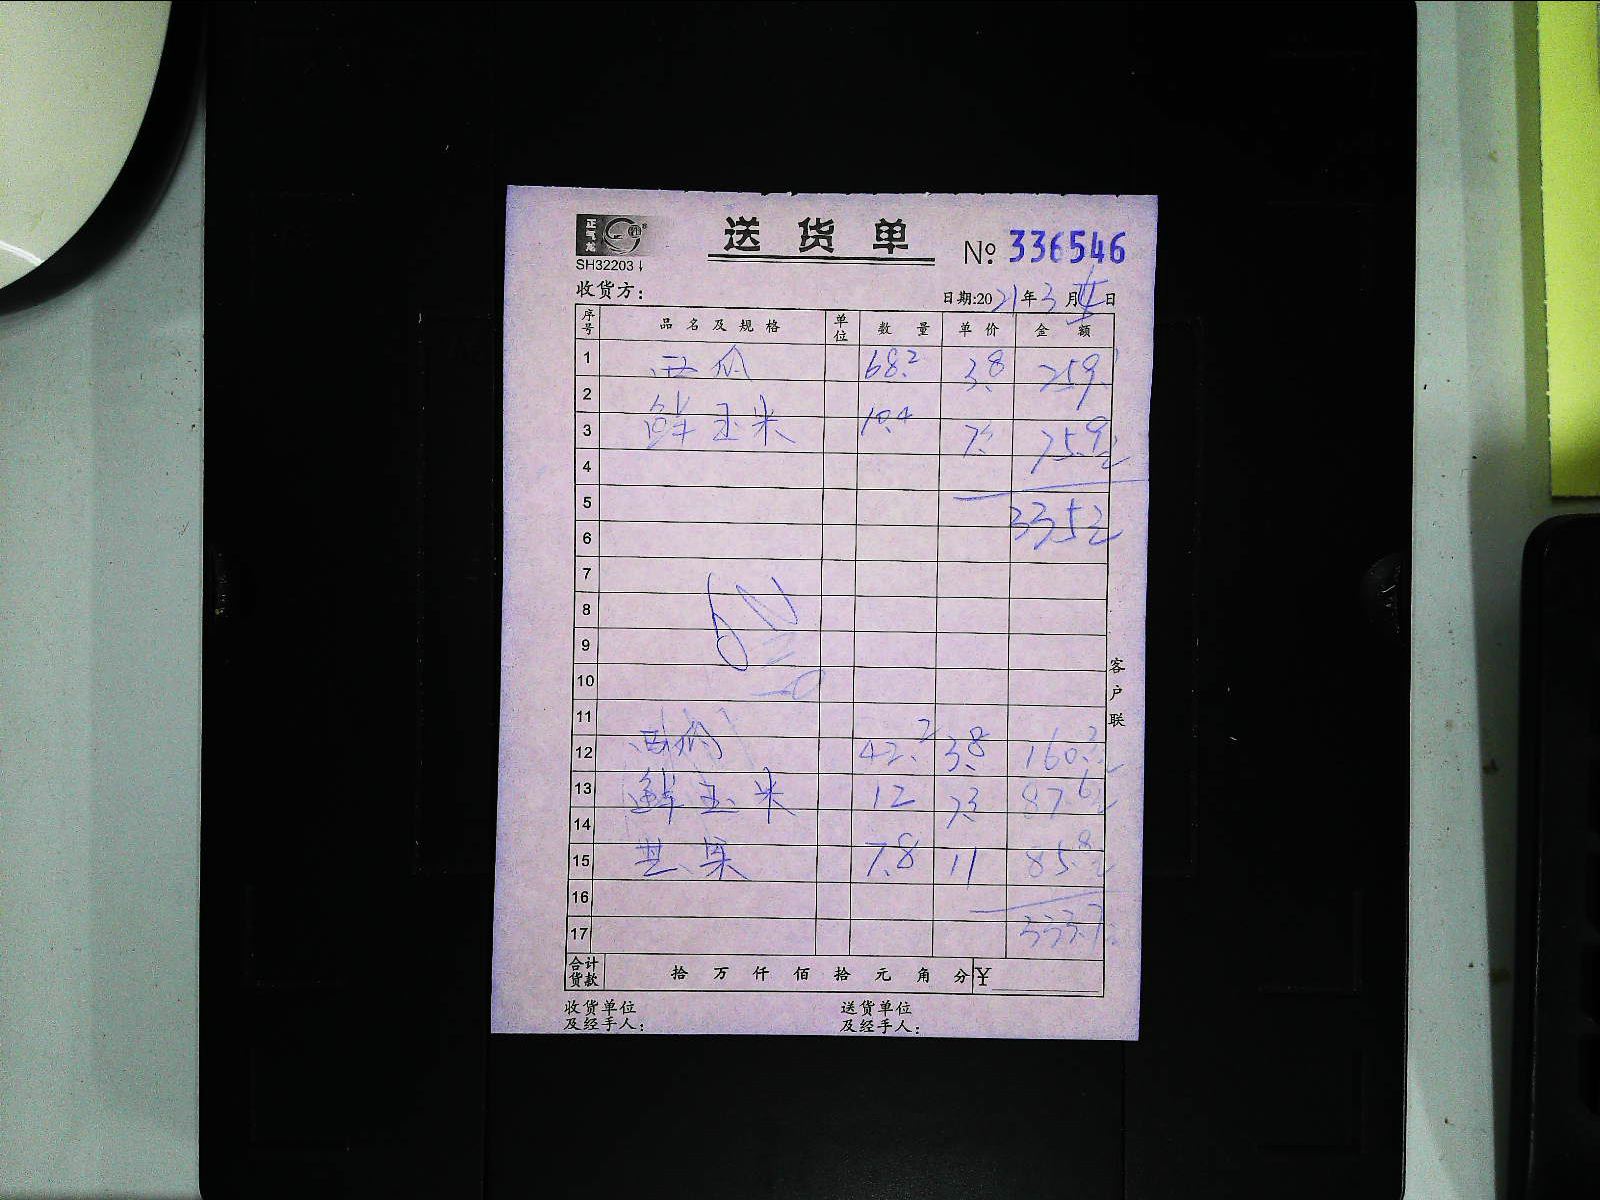 正气龙
SH32203
送货单
№ 336546
收货方：
日期:2021年3月日
序号 品名及规格 单位 数量 单价 金额
1 西瓜 68.2 3.8 259.1
2
3 鲜玉米 10.4 7.3 75.9元
4
5
335元
6
7
8
9
10
11
12 西瓜 42.2 3.8 160.3元
13 鲜玉米 12 7.3 87.6元
14
15 芒果 7.8 11 85.8元
16
17 333.7元
合计货款 拾万仟佰拾元角分 ¥
客户联
收货单位 送货单位
及经手人： 及经手人：